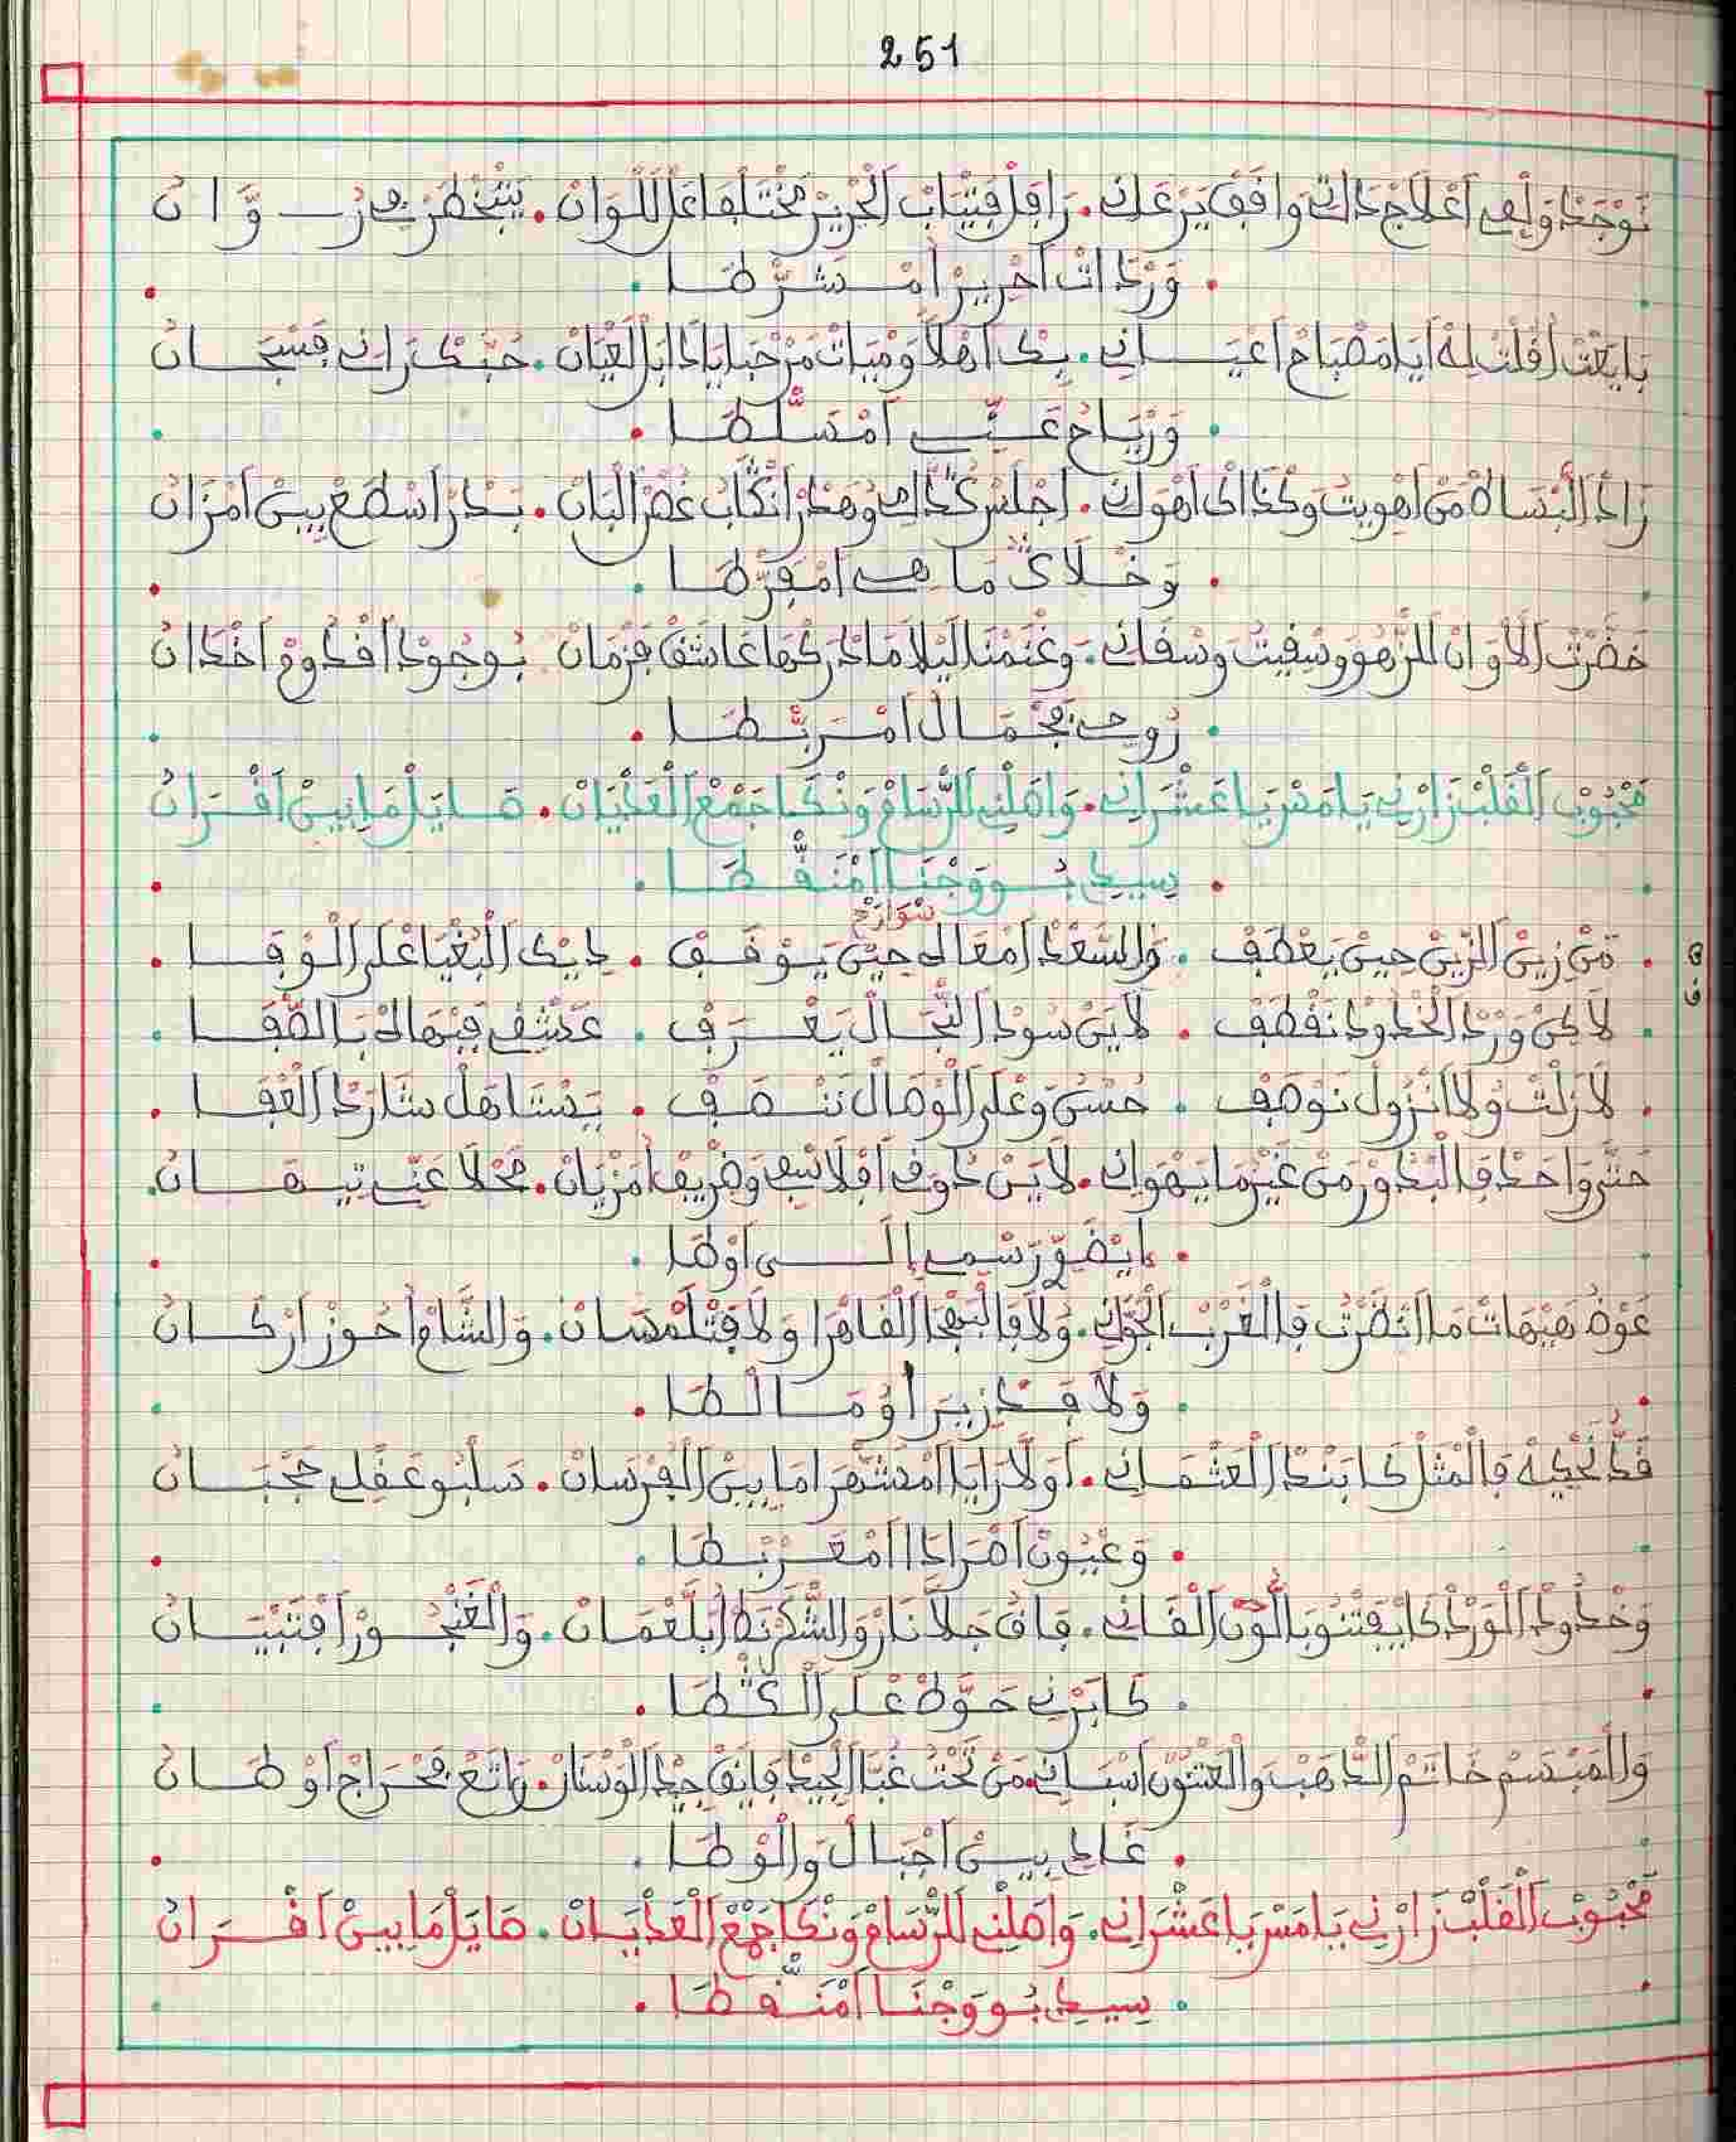 251
نَوْجَدْ وَلْفِي اَعْلَاجْ دَاتِي وَافَقْ يَرْعَانِي. رَافَلْ فَتْيَابْ اَلْحْرِيرْ مَخْتَلْفَا عَلْ اَللْوَانْ. يَتْخَطَّرْ فِي رْوَّانْ
. وَرْدَاتْ اَحْرِيرْ اَمْشَرّْطَا .
بَايَعْتْ اُقُلْتْ لِهْ اَيَا مَصْبَاحْ اَعْيَانِي. بِكْ اَهْلَا وَمْيَاتْ مَرْحْبَا يَا دَابَلْ لَعْيَانْ. حُبّْكْ رَانِي فَسْجَانْ
. وَرْيَاحُ عَنِّي اَمْسَلّْطَا .
زَادْ اَلْبْسَاطْ مَنْ اَهْوِيتْ وَكْذَالِكْ اَهْوَانِي. اَجْلَسْ كْدَّامِي وَهْدَرْ اَنْكَابْ غُصْنْ اَلْبَانْ. بَدْرْ اَسْطَعْ بِينْ اَمْزَانْ
. وَخْلَاكْ مَا هِي اَمْفَرّْطَا .
حَضْرَتْ اَلْاَوَانْ للزّْهُو وَسْقِيتُ وَسْقَانِي. وَغْنَمْنَا لِيلَا مَا دْرَكْهَا عَاشَقْ فَزْمَانْ بُوجُودْ اَقْدُومْ اَخْدَانْ
. رُوحِي بَجْمَالُ اَمْرَبّْطَا .
مَحْبُوبْ اَلْقَلْبْ زَارْنِي يَامَسْ يَا عَشْرَانِي. وَاصَلْنِي لَلرّْسَامْ وَنْكَا جَمْعْ اَلْعَدْيَانْ. صَايَلْ مَا بِينْ اَقْرَانْ
. سِيدِي بُو وَجْنَا اَمْنَقّْطَا .
سْوَارَحْ
. مَنْ زِينْ اَلزِّينْ حِينْ يَعْطَفْ . وَالسَّعْدْ اَمْعَاكْ حِينْ يَوْقَفْ . دِيكْ اَلْبْغْيَا عْلَى اَلْوْفَا .
. لَاكِنْ وَرْدْ اَلْخْدُودْ نَقْطَفْ . لَايَنْ سُودْ اَلنّْجَالْ يَعْرَفْ . عَشْقِي فِيهَا لْكْ بَالصّْفَا .
. لَا زَلْتْ وَلَا اَنْزُولْ نَوْصَفْ . حُسْنُ وَعْلَى اَلْوْصَالْ نَنْصَفْ . يَسْتَاهَلْ شَارَدْ اَلْعْفَا .
حَتَّى وَاحَدْ فَالْبْدُورْ مَنْ غَيْرْ مَا يَهْوَانِي. لَايَنْ دُوقِي اَفْلَاسْفِي وَضْرِيفْ اَمْزْيَانْ. مَحْلَا عَنِّي تِيهَانْ.
. اِيضَوّْ رَسْمِي اِلَى اَوْطَا .
عَوْضُ هِيهَاتْ مَا اَنْضَرْتْ فَالْغَرْبْ اَلْجُوَّانِي. وَلَا فَالْبَهْجَا اَلْقَاهْرَا وَلَا فَتْلَمْسَانْ. وَالشَّامْ اَحُوزْ اَرْكَانْ
. وَلَا فَجْزِيرَا اُو مَالْطَا .
قَدُّ نَحْكِيهْ فَالْمْثَلْ كَا بَنْدْ اَلْعَتْمَانِي. اَوْلَا رَايَا اَمْشَهّْرَا مَا بِينْ اَلْفُرْسَانْ. سَلْبُو عَقْلِي حَجْبَانْ
. وَعْيُونُ اَمْرَادَا اَمْعَرْبْطَا .
وَخْدُودُ اَلْوَرْدْ كَا يَفْتْنُو بَاللُّونْ اَلْقَانِي. فَاقُ جَلَّنَارْ وَالشَّكْرْنَطْ اُبَلْعْمَانْ. وَالْغَنْجُورْ اَفْتَبْيَانْ
. كَا بَرْنِي حَوَّطْ عْلَى اَلْكْطَا .
وَالْمَبْسَمْ خَاتَمْ اَلدّْهَبْ وَالْعَتْنُونْ اَسْبَانِي. مَنْ تَحْتُ غُبَّا اَلْجِيدْ فَايَقْ جِيدْ اَلْوَسْنَانْ. رَاتَعْ فَحْرَاجْ اَوْطَانْ
. غَادِي بِينْ اَجْبَالْ وَالْوْطَا .
مَحْبُوبْ اَلْقَلْبْ زَارْنِي يَامَسْ يَا عَشْرَانِي. وَاصَلْنِي لَلرّْسَامْ وَنْكَا جَمْعْ اَلْعَدْيَانْ. صَايَلْ مَا بِينْ اَقْرَانْ
. سِيدِي بُو وَجْنَا اَمْنَقّْطَا .